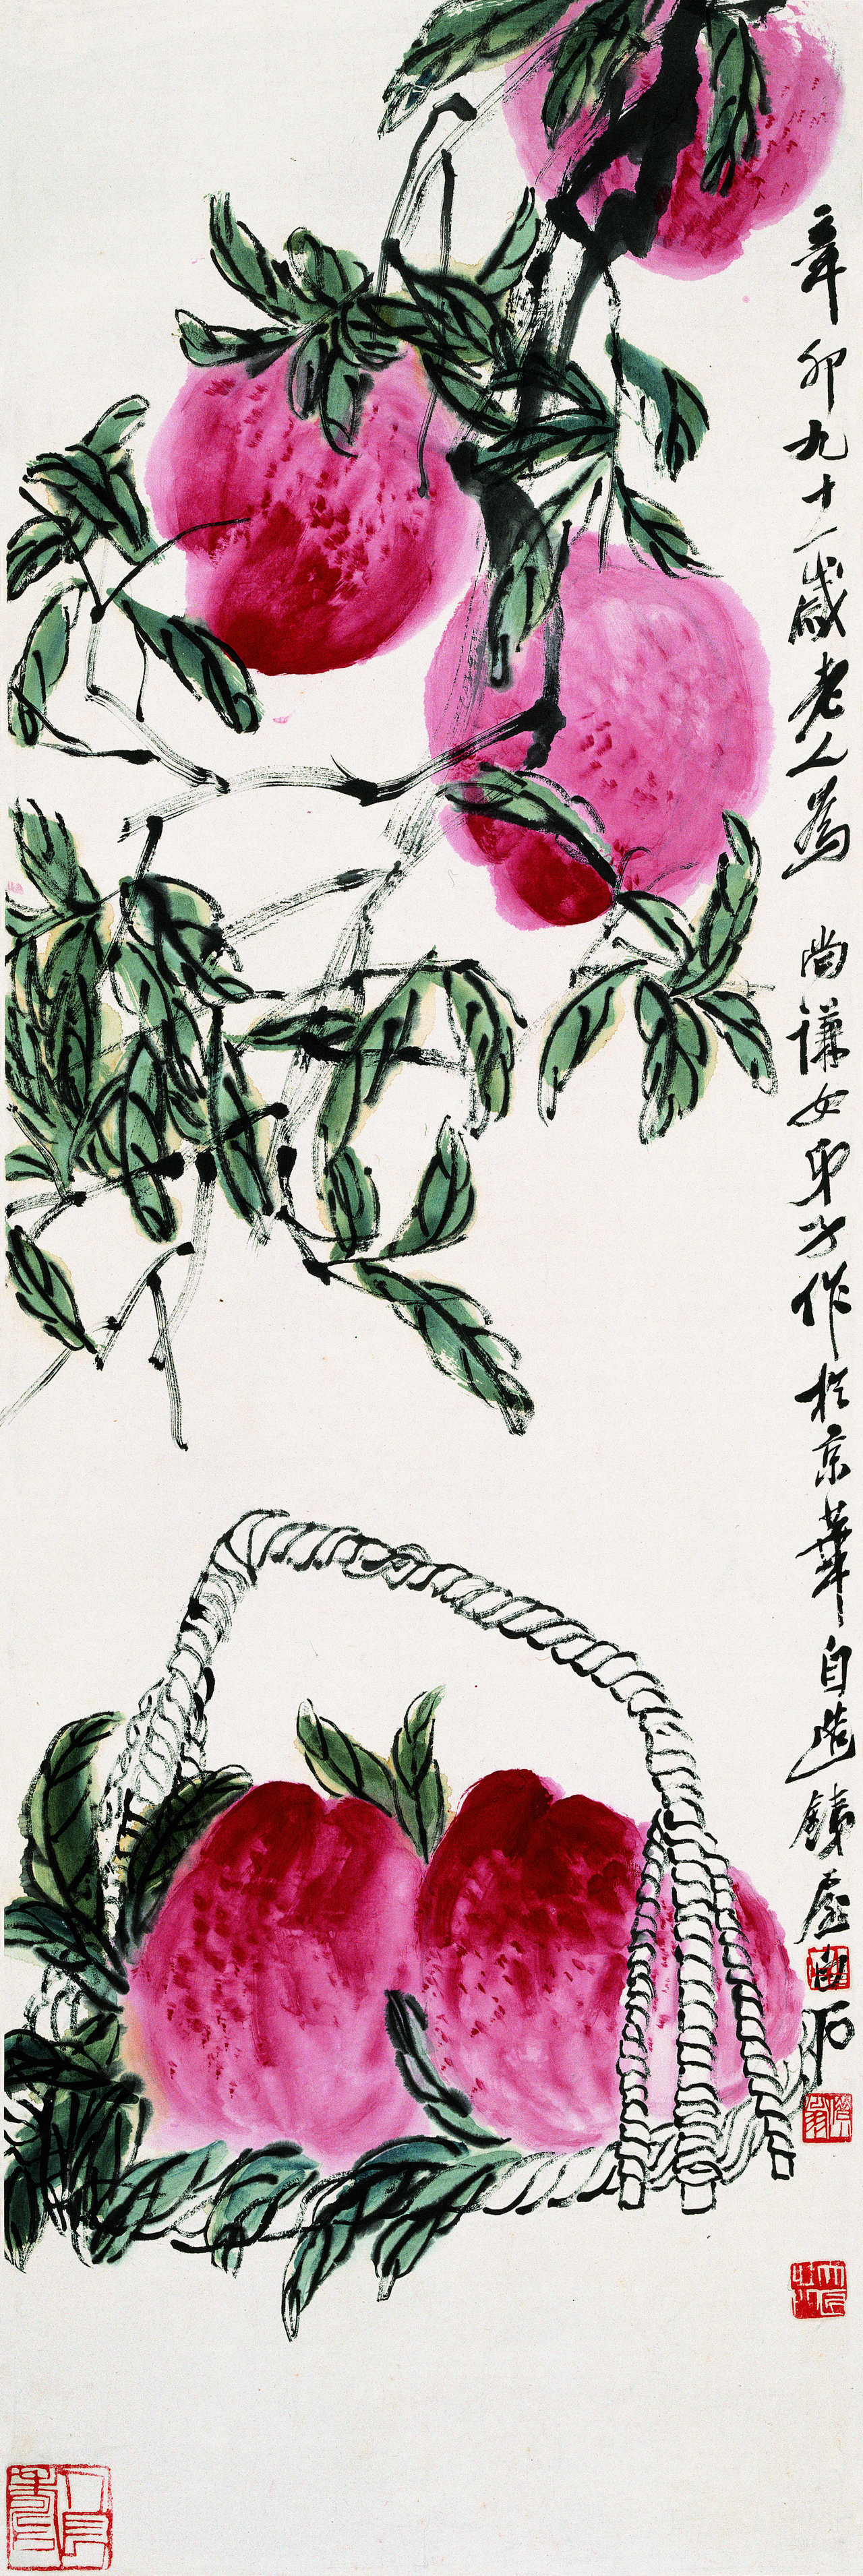 辛卯九十一歲老人為尚謙女弟子作於京華自造鐵屋白石